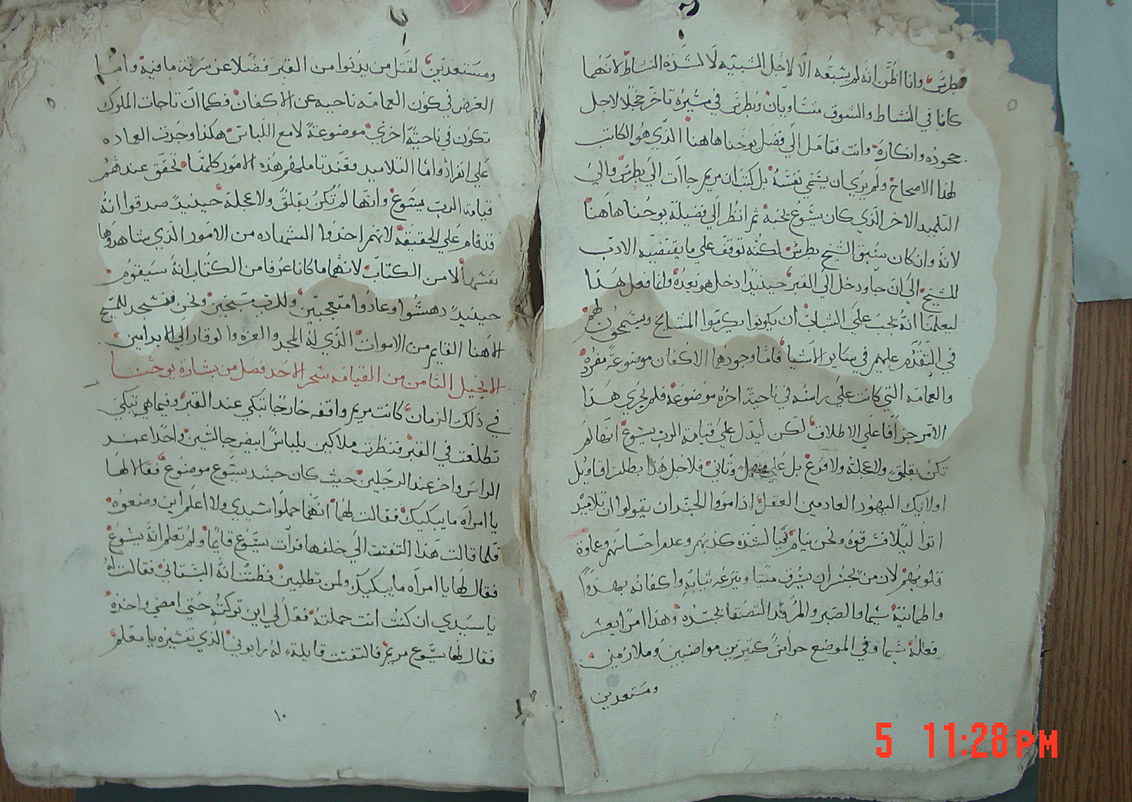 بطرس وانا اظن انه لم يسبقه الا لاجل الشبيبه لا لشدة النشاط لانهما
كانا في النشاط والشوق متساويان وبطرس في مسيره تاخر خجلا لاجل
جحوده وانكاره وانت فتامل الي فضل يوحنا هاهنا الذي هو الكاتب
لهذا الاصحاح ولم يري ان يسمي نفسه بل كتب ان مريم جاات الي بطرس والي
التلميد الاخر الذي كان يسوع يحبه ثم انظر الي فضيلة يوحنا هاهنا
لانه وان كان سبق الشيخ بطرس لكنه توقف علي ما يقتضيه الادب
للشيخ الي ان جا ودخل الي القبر حينيد دخل هو بعده وانما فعل هدا
ليعلمنا انه يجب علي الشباب ان يكونوا يكرموا المشايخ ويسمحون لهم
في التقدم عليهم في ساير الاشيا فاما وجودهما الاكفان موضوعة مفرده
والعمامه التي كانت علي راسه في ناحية اخره موضوعه فلم يجري هدا
الامر جزافا علي الاطلاق لكن ليدل علي قيامة الرب يسوع انها لم
تكن بقلق ولا عجلة ولا فزع بل علي وتاني فلاجل هدا بطلت اقاويل
اولايك اليهود العادمين العقل اذ امروا الجند ان يقولوا ان تلاميده
اتوا ليلا فسرقوه ونحن نيام فيا لشدة كدبهم وعدم احساسهم وغباوة
قلوبهم لان من يجسر ان يسرق ميتا وينزع تيابه واكفانه بهدوا
واطمانية سيما والصبر والمر قد التصقا بجسده وهدا امرا يعسر
فعله سيما وفي الموضع حراس كتيرين مواضبين وملازمين
ومستعدين
ومستعدين لقتل من يدنوا من القبر فضلا عن سرقة ما فيه واما
الغرض في كون العمامه ناحيه عن الاكفان فكما ان تاجات الملوك
تكون في ناحية اخري موضوعة لا مع اللباس هكدا وجدت العاده
علي انفراد واما التلاميد فعند تاملهم هده الامور كلها تحقق عندهم
قيامة الرب يسوع وانها لم تكن بقلق ولا عجلة حينيد صدقوا انه
قد قام علي الحقيقه لانهم اخدوا الشهاده من الامور الذي شاهدوها
نفسها لا من الكتاب لانهما ما كانا عرفا من الكتاب انه سيقوم
حينيد دهشوا وعادوا متعجبين وللرب مسبحين ونحن فنسجد للمسيح
الاهنا القايم من الاموات الذي له المجد والعزه والوقار الي الابد امين
الانجيل التامن من القيامه سحر الاحد فصل من بشارة يوحنا
في دلك الزمان كانت مريم واقفه خارجا تبكي عند القبر وفيما هي تبكي
تطلعت في القبر فنظرت ملاكين بلباس ابيض جالسين واحدا عند
الراس واخر عند الرجلين حيث كان جسد يسوع موضوع فقالا لها
يا امراه ما يبكيك فقالت لهما انهما حملوا سيدي ولا اعلم اين وضعوه
فلما قالت هدا التفتت الي خلفها فرات يسوع قايما ولم تعلم انه يسوع
فقال لها يا امراه ما يبكيك ولمن تطلبين فظنت انه البستاني فقالت له
يا سيدي ان كنت انت حملته فقل لي اين تركته حتي امضي واخده
فقال لها يسوع مريم فالتفتت قايلة له رابوني الذي تفسيره يا معلم
١٠
5 11:28 PM